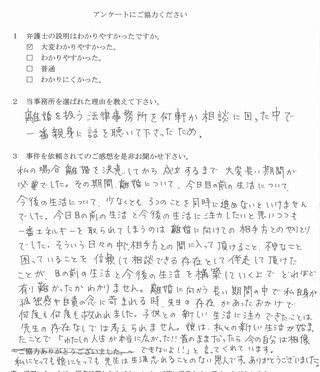 アンケートにご協力ください
1 弁護士の説明はわかりやすかったですか。
☑ 大変わかりやすかった。
□ わかりやすかった。
□ 普通
□ わかりにくかった。
2 当事務所を選ばれた理由を教えて下さい。
離婚を扱う法律事務所を何軒か相談に回った中で
一番親身に話を聴いて下さったため。
3 事件を依頼されてのご感想を是非お聞かせ下さい。
私の場合 離婚を決意してから成立するまで大変長い期間が
必要でした。その期間、離婚について、今日目の前の生活について、
今後の生活について、少なくとも3つのことを同時に進めないといけません
でした。今目の前の生活と今後の生活に注力したいと思いつつも
一番エネルギーを取られてしまうのは離婚に向けての相手方とのやりとり
でした。そういう日々の中で相手方との間に入って頂けること、不安なこと
困っていることを信頼して相談できる存在として伴走して頂けた
ことが、目の前の生活と今後の生活を構築していく上でどれほど
有り難かったかわかりません。離婚に向かう長い期間の中で私自身が
孤独感や自責の念に苛まれる時、先生の存在があったおかげで
何度も何度も救われました。子供との新しい生活に注力できたことは
先生の存在なしでは考えられません。娘は、私との新しい生活が始ま
ったことで「わたしの人生が本当に広がった!!昔のままだったら今の自分は想像
～ご協力ありがとうございました。～ できないよ!!」と言ってくれています。
私にとっても娘にとっても先生は生涯忘れることのない恩人です。ありがとうございました。